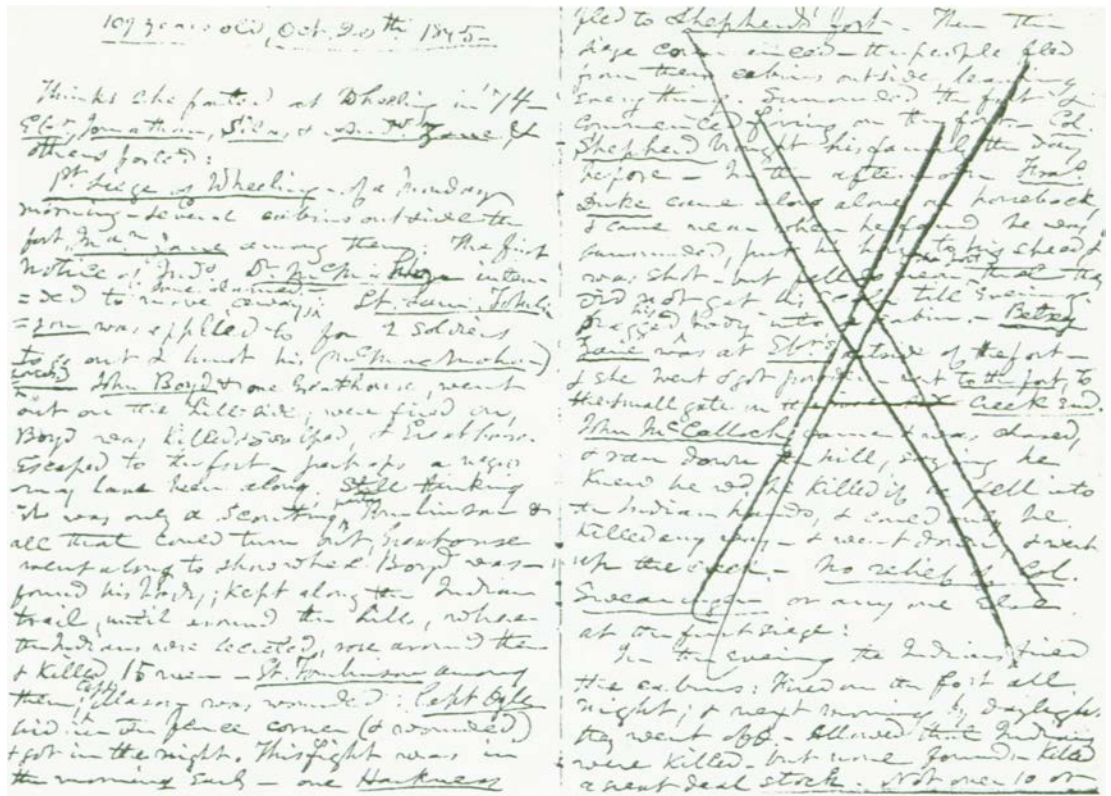 109 years old, Oct. 20th 1845-
Thinks she forted at Wheeling in '74-
Ebr, Jonathan, Silas, & Zane &
others forted:
1st. Siege of Wheeling - of a Monday
morning - several cabins outside the
fort, Zane among them: The first
notice of Inds.
=ded to move away; Lt. Tomlin
=son was applied to for 2 soldiers
to go out & hunt his (McMachan)
John Boyd & one Greathouse, went
out on the hill-side, were fired on,
Boyd was killed & scalped, & Greathouse
escaped to the fort - perhaps a negro
may have been along. Still thinking
it was only a scouting party, Tomlinson &
all that could turn out, Greathouse
went along to show where Boyd was -
found his body; kept along the Indian
trail, until around the hill, where
the Indians were secreted, rose around them
& killed 15 men - Lt. Tomlinson among
them; Capt. Mason was wounded: Capt Ogle
hid in the fence corner (& wounded)
& got in the night. This fight was in
the morning early - one Harkness
fled to Shepherd's fort - Then the
siege commenced - the people fled
from their cabins outside, leaving
everything. Surrounded the fort &
commenced firing on the fort - Col.
Shepherd brought his family the day
before - In the afternoon Fras.
Duke came along alone on horseback,
& came near when he found he was
surrounded, put his horse to his speed &
was shot - but fell so near that they
did not get his till evening.
Dragged his body into a cabin. - Betsey
Zane was at Ebr's outside of the fort -
& she went & got powder - to the fort, to
the small gate on the creek end.
John McCulloch came & was chased,
& ran down the hill, saying he
knew he wd. be killed if he fell into
the Indian hands, & could only be
killed any way - & went down, & went
up the creek. - No relief of Col.
Swearingen or any one else
at the first siege:
In the evening the Indians fired
the cabins: Fired on the fort all
night; & next morning by daylight
they went off - allowed that Indians
were killed - but none found - killed
a great deal stock. Not over 10 or